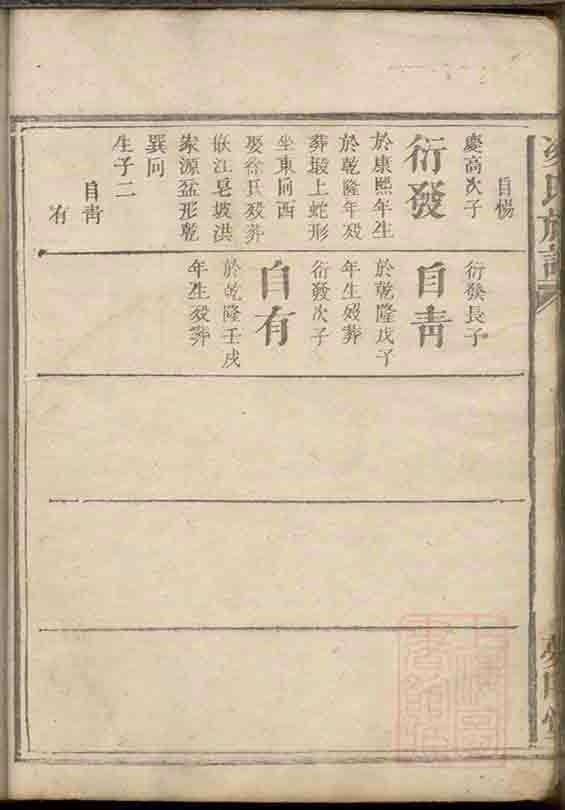 自暢
慶高次子
衍發
於康熙年生
於乾隆年歿
葬塅上蛇形
坐東向西
娶徐氏歿葬
畎江皂坡洪
家源盆形乾
巽向
生子二
自靑
有
衍發長子
自靑
於乾隆戊子
年生歿葬
衍發次子
自有
於乾隆壬戌
年生歿葬
氏族譜